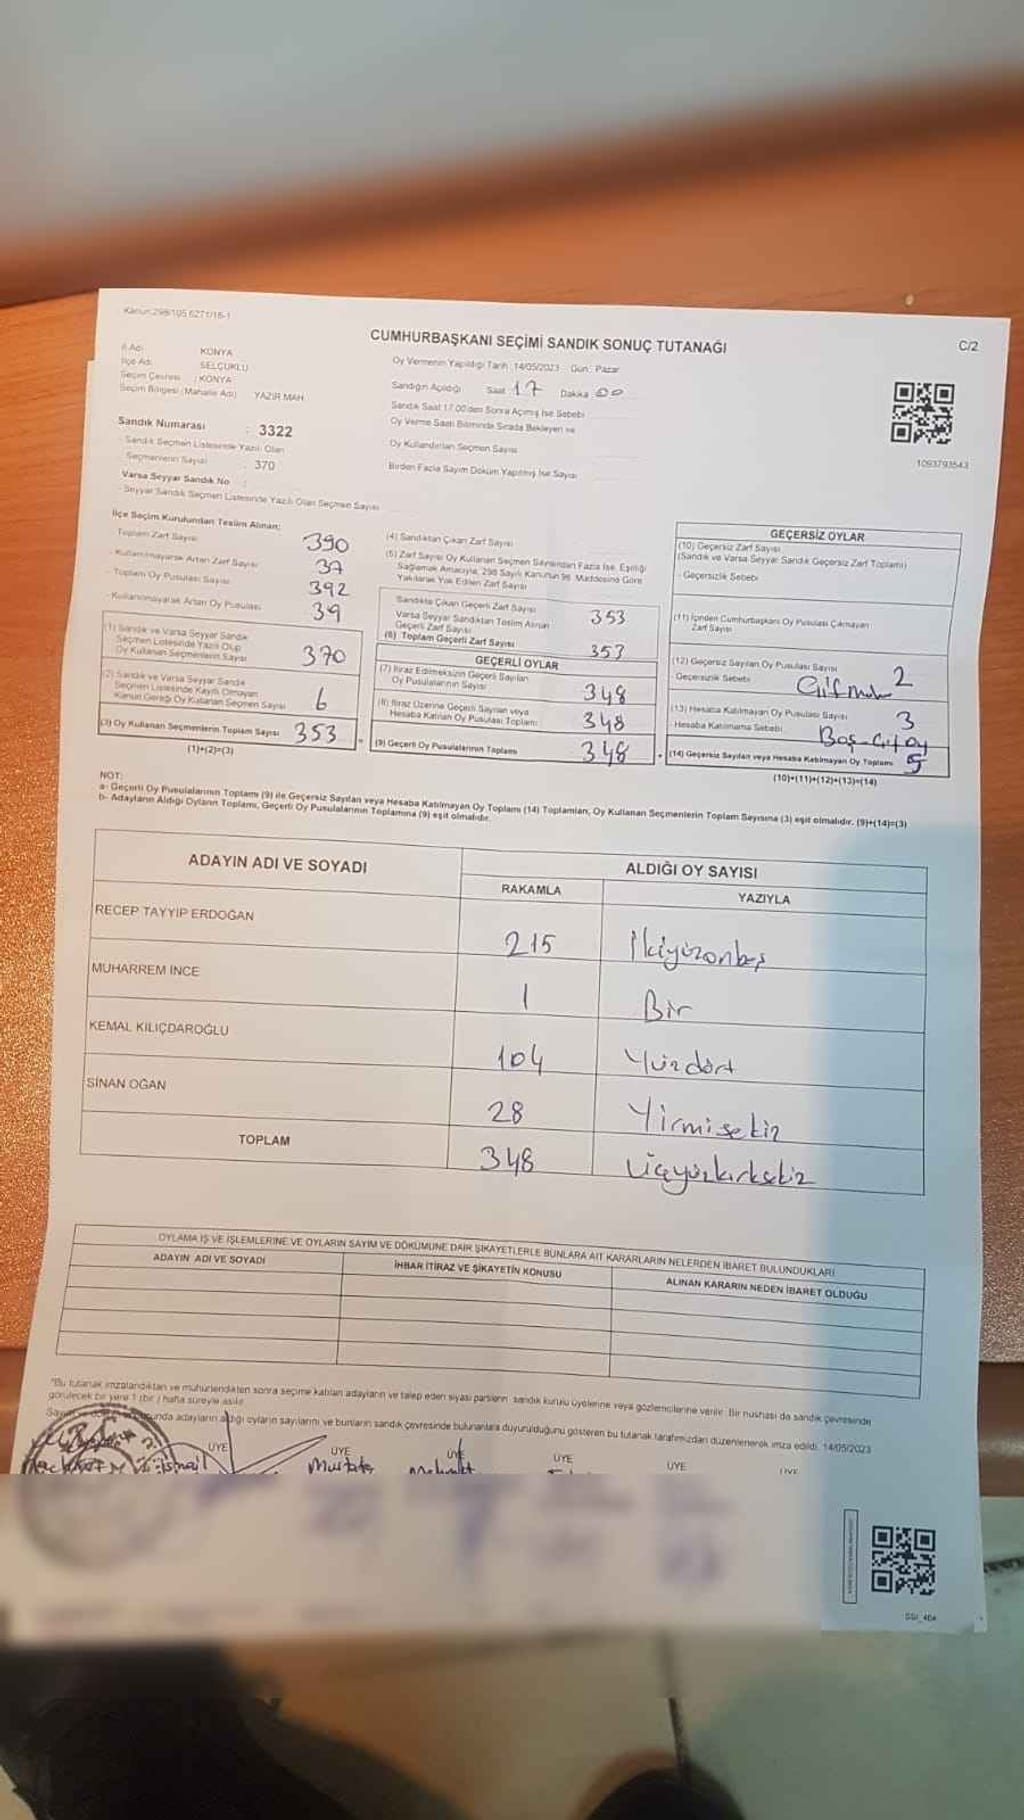 Kanun:298/105 6271/16-1
CUMHURBAŞKANI SEÇİMİ SANDIK SONUÇ TUTANAĞI
C/2
İl Adı : KONYA
İlçe Adı : SELÇUKLU
Seçim Çevresi : KONYA
Seçim Bölgesi (Mahalle Adı) YAZIR MAH.
Sandık Numarası : 3322
Sandık Seçmen Listesinde Yazılı Olan
Seçmenlerin Sayısı : 370
Varsa Seyyar Sandık No :
- Seyyar Sandık Seçmen Listesinde Yazılı Olan Seçmen Sayısı
Oy Vermenin Yapıldığı Tarih :14/05/2023 Gün: Pazar
Sandığın Açıldığı Saat 17 Dakika 00
Sandık Saat 17.00'den Sonra Açılmış İse Sebebi
Oy Verme Saati Bitiminde Sırada Bekleyen ve
Oy Kullandırılan Seçmen Sayısı
Birden Fazla Sayım Döküm Yapılmış İse Sayısı
1093793543
İlçe Seçim Kurulundan Teslim Alınan;
- Toplam Zarf Sayısı 390
- Kullanılmayarak Artan Zarf Sayısı 37
- Toplam Oy Pusulası Sayısı 392
- Kullanılmayarak Artan Oy Pusulası 39
(1) Sandık ve Varsa Seyyar Sandık
Seçmen Listesinde Yazılı Olup
Oy Kullanan Seçmenlerin Sayısı 370
(2) Sandık ve Varsa Seyyar Sandık
Seçmen Listesinde Kayıtlı Olmayan
Kanun Gereği Oy Kullanan Seçmen Sayısı 6
(3) Oy Kullanan Seçmenlerin Toplam Sayısı 353
(1)+(2)=(3)
(4) Sandıktan Çıkan Zarf Sayısı
(5) Zarf Sayısı Oy Kullanan Seçmen Sayısından Fazla İse, Eşitliği
Sağlamak Amacıyla, 298 Sayılı Kanunun 98. Maddesine Göre
Yakılarak Yok Edilen Zarf Sayısı
Sandıkta Çıkan Geçerli Zarf Sayısı 353
Varsa Seyyar Sandıktan Teslim Alınan
Geçerli Zarf Sayısı
(6) Toplam Geçerli Zarf Sayısı 353
GEÇERLİ OYLAR
(7) İtiraz Edilmeksizin Geçerli Sayılan
Oy Pusulalarının Sayısı 348
(8) İtiraz Üzerine Geçerli Sayılan veya
Hesaba Katılan Oy Pusulası Toplamı 348
(9) Geçerli Oy Pusulalarının Toplamı 348
GEÇERSİZ OYLAR
(10) Geçersiz Zarf Sayısı
(Sandık ve Varsa Seyyar Sandık Geçersiz Zarf Toplamı)
- Geçersizlik Sebebi
(11) İçinden Cumhurbaşkanı Oy Pusulası Çıkmayan
Zarf Sayısı
(12) Geçersiz Sayılan Oy Pusulası Sayısı 2
Geçersizlik Sebebi
(13) Hesaba Katılmayan Oy Pusulası Sayısı 3
Hesaba Katılmama Sebebi Boş
(14) Geçersiz Sayılan veya Hesaba Katılmayan Oy Toplamı 5
(10)+(11)+(12)+(13)=(14)
NOT:
a- Geçerli Oy Pusulalarının Toplamı (9) ile Geçersiz Sayılan veya Hesaba Katılmayan Oy Toplamı (14) Toplamları, Oy Kullanan Seçmenlerin Toplam Sayısına (3) eşit olmalıdır. (9)+(14)=(3)
b- Adayların Aldığı Oyların Toplamı, Geçerli Oy Pusulalarının Toplamına (9) eşit olmalıdır.
ADAYIN ADI VE SOYADI
ALDIĞI OY SAYISI
RAKAMLA YAZIYLA
RECEP TAYYİP ERDOĞAN 215 İkiyüzonbeş
MUHARREM İNCE 1 Bir
KEMAL KILIÇDAROĞLU 104 Yüzdört
SİNAN OĞAN 28 Yirmisekiz
TOPLAM 348 Üçyüzkırksekiz
OYLAMA İŞ VE İŞLEMLERİNE VE OYLARIN SAYIM VE DÖKÜMÜNE DAİR ŞİKAYETLERLE BUNLARA AİT KARARLARIN NELERDEN İBARET BULUNDUKLARI
ADAYIN ADI VE SOYADI İHBAR İTİRAZ VE ŞİKAYETİN KONUSU ALINAN KARARIN NEDEN İBARET OLDUĞU
"Bu tutanak imzalandıktan ve mühürlendikten sonra seçime katılan adayların ve talep eden siyasi partilerin sandık kurulu üyelerine veya gözlemcilerine verilir. Bir nüshası da sandık çevresinde
görülecek bir yere 1 (bir) hafta süreyle asılır.
adayların aldığı oyların sayılarını ve bunların sandık çevresinde bulunanlara duyurulduğunu gösteren bu tutanak tarafımızdan düzenlenerek imza edildi. 14/05/2023
ÜYE ÜYE ÜYE ÜYE ÜYE ÜYE
İsmail Mustafa Mehmet